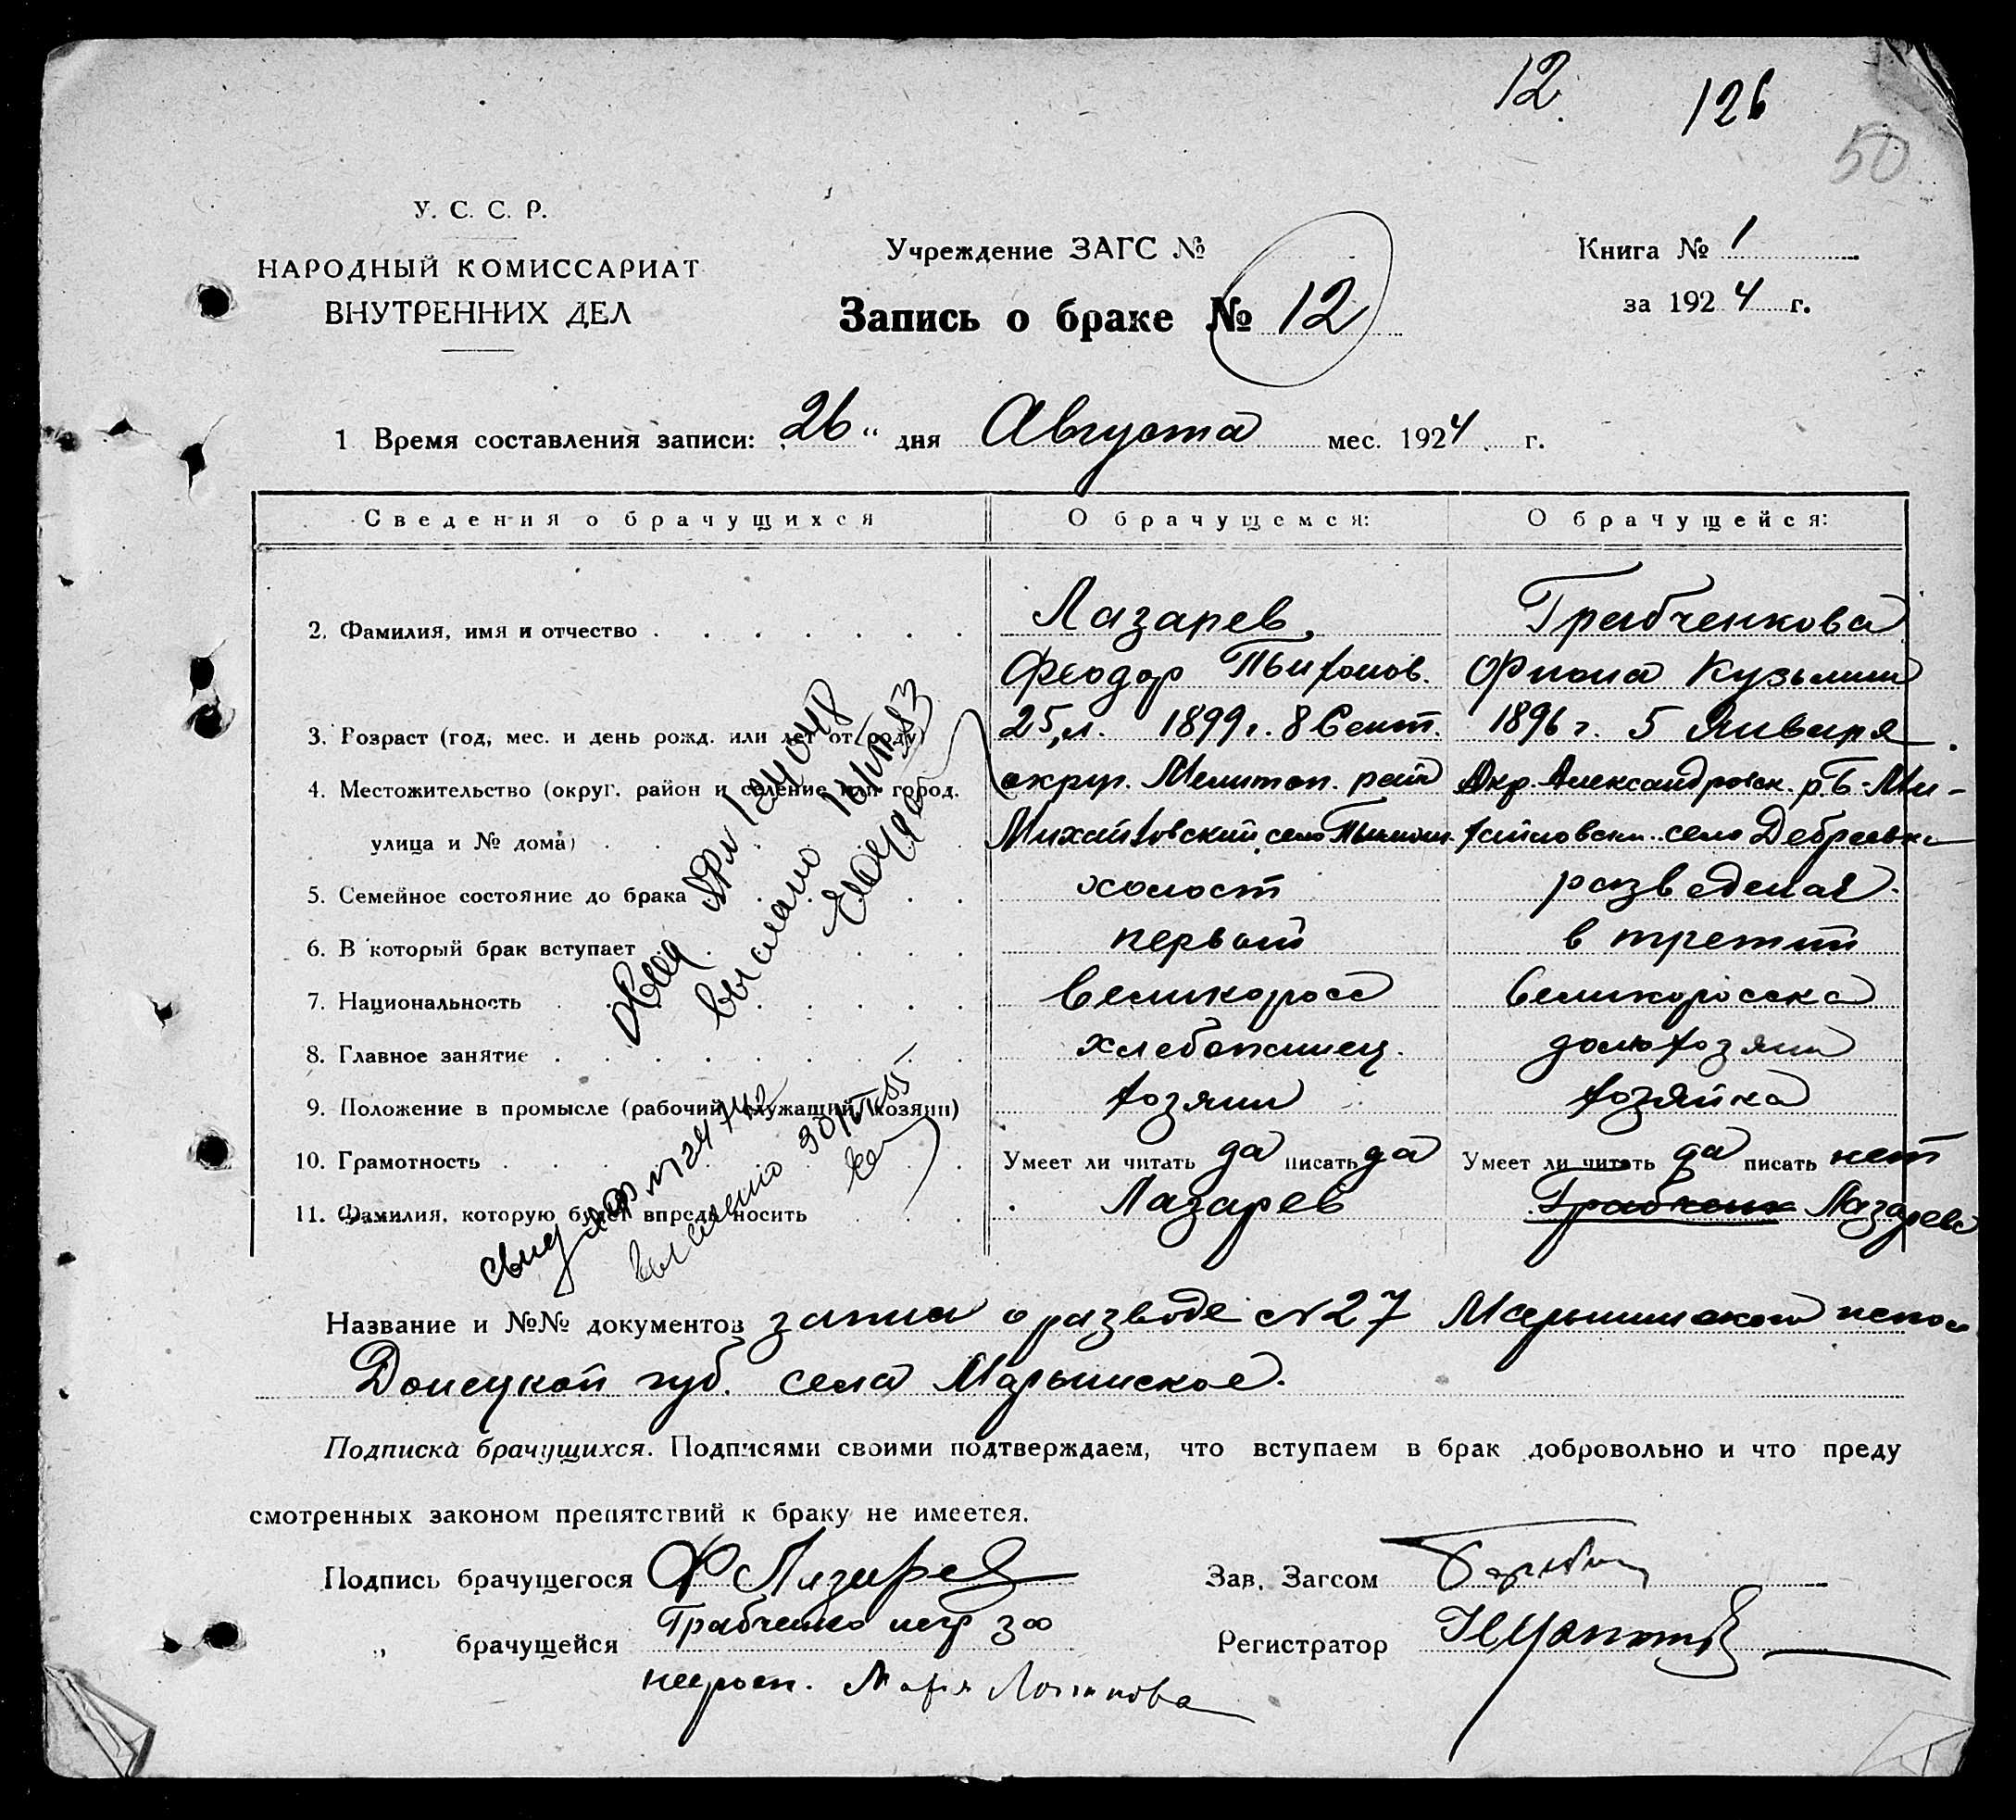 12. 126
50
У. С. С. Р.
НАРОДНЫЙ КОМИССАРИАТ
ВНУТРЕННИХ ДЕЛ
Учреждение ЗАГС №
Книга № 1
за 1924 г.
Запись о браке № 12
1 Время составления записи: 26 " дня Августа мес. 1924 г.
Сведения о брачущихся О брачущемся: О брачущейся:
2. Фамилия, имя и отчество Лазарев, Грабченкова
Феодор Фиона Кузьмин
3. Возраст (год, мес. и день рожд. или лет от роду) 25 л. 1899 г. 8 Сент. 1896 г. 5 Января
4. Местожительство (округ, район и селение или город, округ. Мелитоп. район Окр. Александровск. р. Б-Ми-
улица и № дома) Михайловский, село хайловск. село
5. Семейное состояние до брака холост разведеная
6. В который брак вступает первый в третий
7. Национальность великоросс великоросска
8. Главное занятие хлебопашец домохозяин
9. Положение в промысле (рабочий, служащий, хозяин) хозяин хозяйка
10. Грамотность Умеет ли читать да писать да Умеет ли читать да писать нет
11. Фамилия, которую будет впредь носить Лазарев Лазарева
выслано
выслано
Название и №№ документов запись о разводе №27
Донецкой губ. села Марьинское.
Подписка брачущихся. Подписями своими подтверждаем, что вступаем в брак добровольно и что преду
смотренных законом препятствий к браку не имеется.
Подпись брачущегося Ф Лазарев Зав. Загсом
„ брачущейся Грабченко негр за Регистратор
неграм. Марія